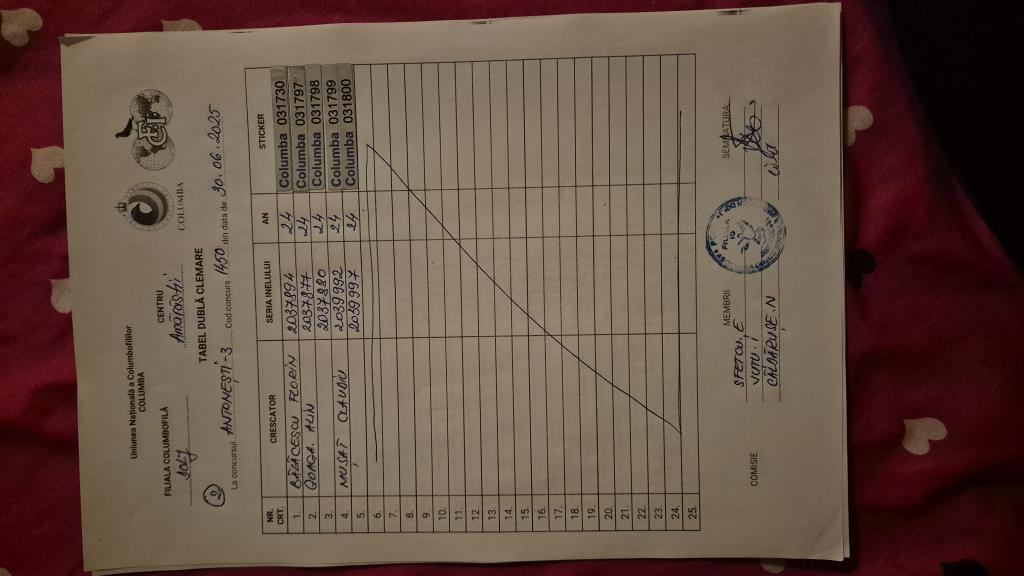 Uniunea Națională a Columbofililor
COLUMBA
COLUMBA
FILIALA COLUMBOFILĂ
CENTRU
TABEL DUBLĂ CLEMARE
2
La concursul ANTONEȘTI-3 Cod concurs 1450 din data de 30.06.2025
NR. CRT. CRESCATOR SERIA INELULUI AN STICKER
1. FLORIN 2037894 24 Columba 031730
2. ALIN 2037877 24 Columba 031797
3. 2037880 24 Columba 031798
4. CLAUDIU 2039992 24 Columba 031799
5. 2039997 24 Columba 031800
6.
7.
8.
9.
10.
11.
12.
13.
14.
15.
16.
17.
18.
19.
20.
21.
22.
23.
24.
25.
COMISIE MEMBRII SEMNATURA: